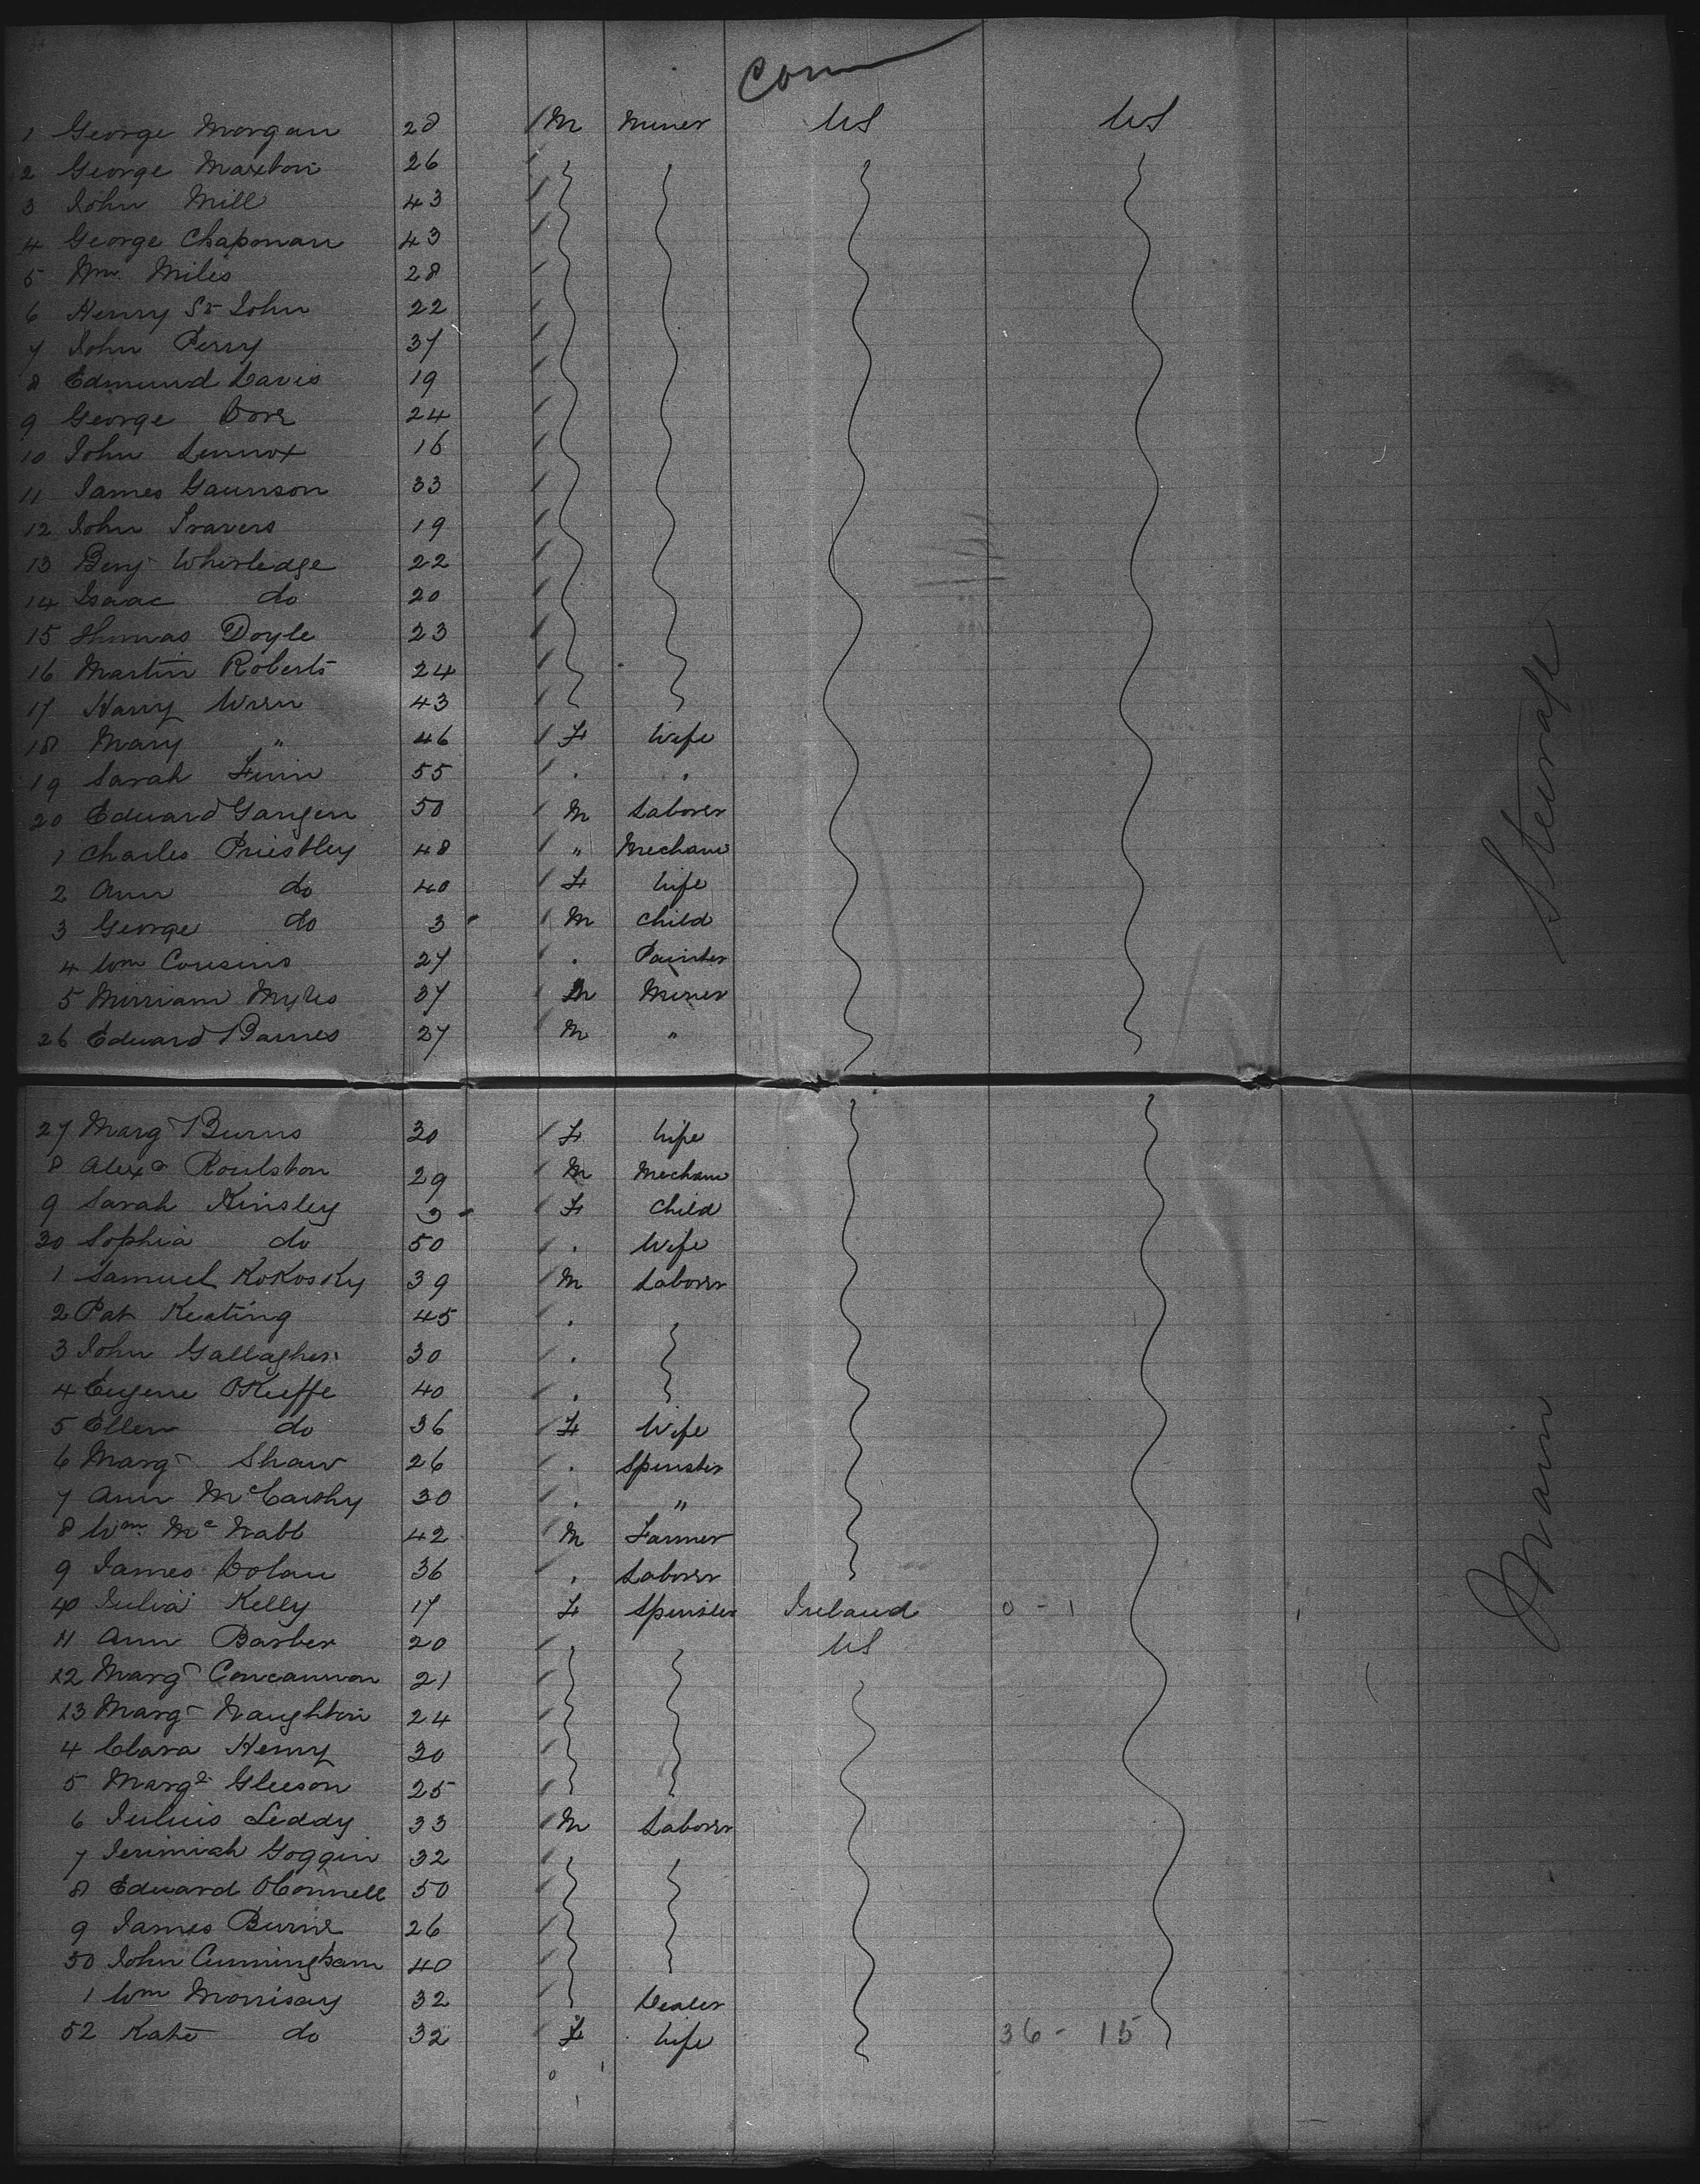 Com
1 George Morgan 28 M Miner US US
2 George Maxton 26
3 John Mill 43
4 George Chapman 43
5 Wm. Miles 28
6 Henry St John 22
7 John Perry 37
8 Edmund Davis 19
9 George Dorr 24
10 John Lennox 16
11 James Gaunson 33
12 John Travers 19
13 Benj Whirledge 22
14 Isaac do 20
15 Thomas Doyle 23
16 Martin Roberts 24
17 Harry Wren 43
18 Mary " 46 F Wife
19 Sarah Finn 55 . .
20 Edward Gangen 50 M Laborer
1 Charles Priestley 48 " Mechanic
2 Ann do 40 F Wife
3 George do 3 M Child
4 Wm Cousins 27 . Painter
5 Mirriam Myles 37 M Miner
26 Edward Barnes 27 M "
27 Marg Burns 30 F Wife
8 Alexr Roulston 29 M Mechanic
9 Sarah Kinsley 3 F Child
30 Sophia do 50 . Wife
1 Samuel Kokosky 39 M Laborer
2 Pat Keating 45 .
3 John Gallagher 30 .
4 Eugene OKeeffe 40 .
5 Ellen do 36 F Wife
6 Margt Shaw 26 . Spinster
7 Ann McCarthy 30 . "
8 Wm. McNabb 42 M Farmer
9 James Dolan 36 . Laborer
40 Julia Kelly 17 F Spinster Ireland 0 - 1 1
11 Ann Barber 20 US
12 Margt Concannon 21
13 Margt Naughton 24
4 Clara Henry 30
5 Margt Gleeson 25
6 Julius Leddy 33 M Laborer
7 Jerimiah Goggin 32
8 Edward OConnell 50
9 James Burns 26
50 John Cunningham 40
1 Wm Morrisay 32 Dealer
52 Kate do 32 F Wife 36 - 15
Steerage
Main